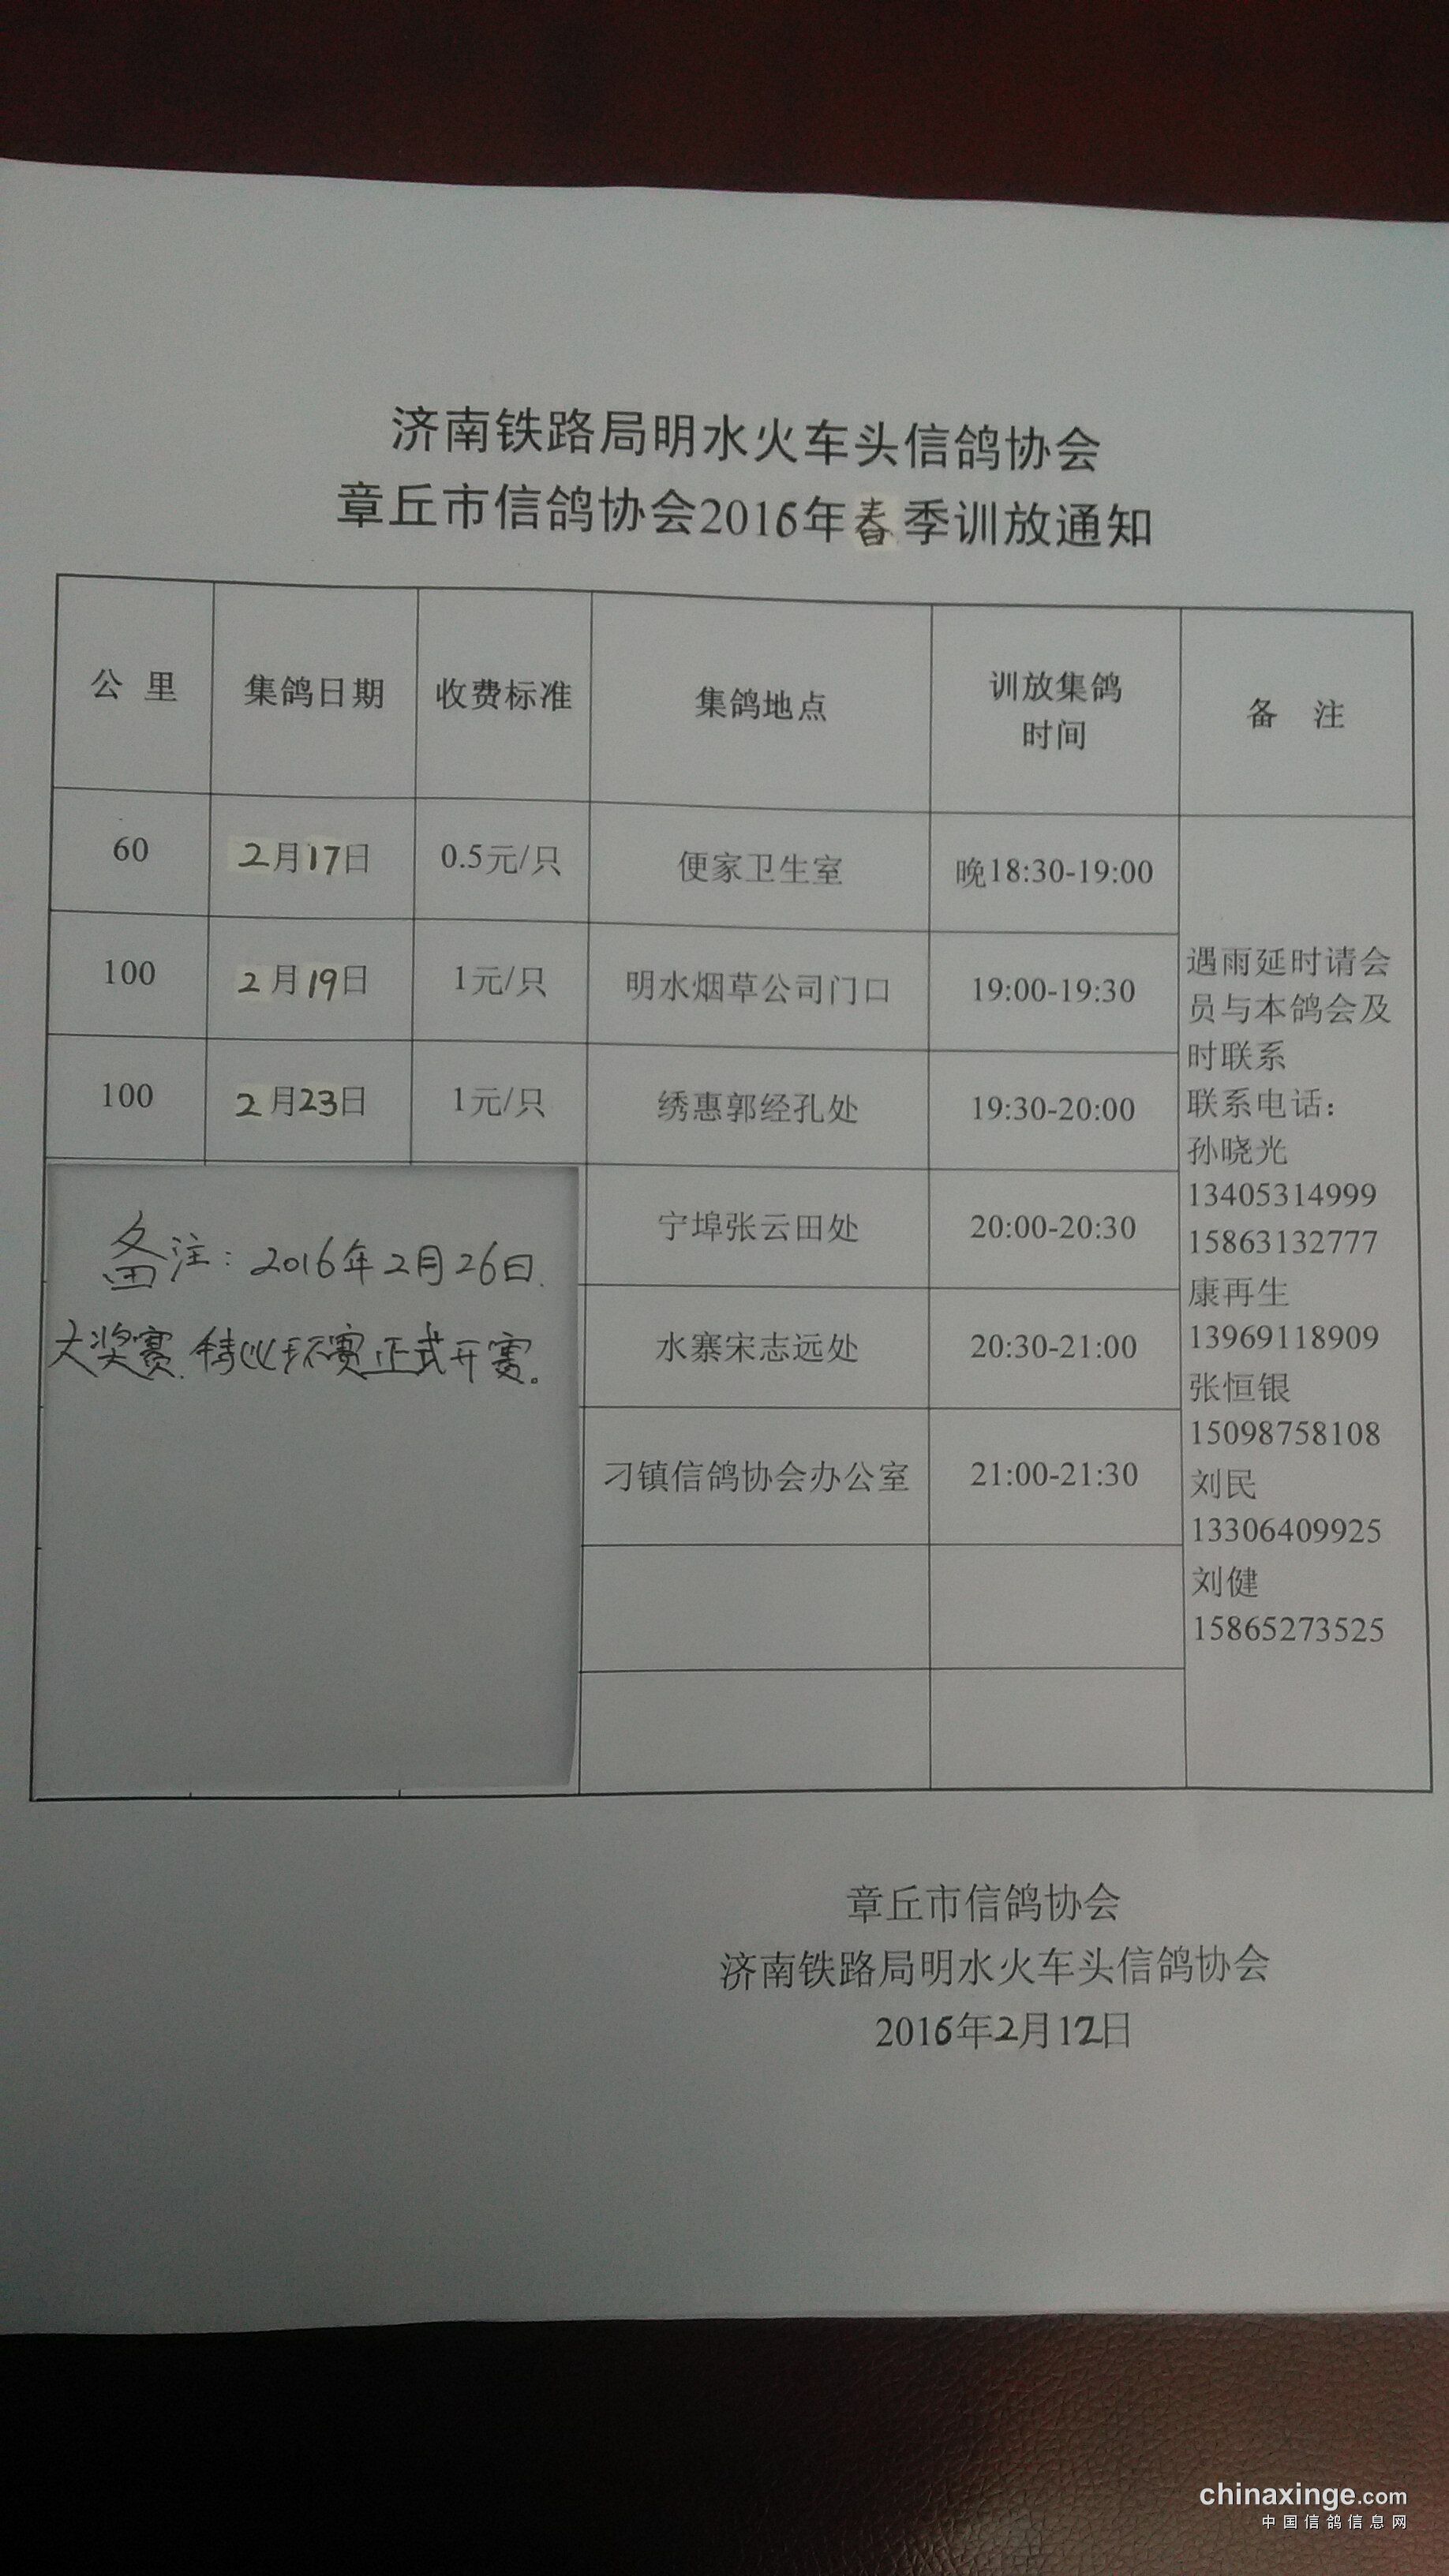 济南铁路局明水火车头信鸽协会
章丘市信鸽协会2016年春季训放通知
公 里 集鸽日期 收费标准 集鸽地点 训放集鸽时间 备 注
60 2月17日 0.5元/只 便家卫生室 晚18:30-19:00
100 2月19日 1元/只 明水烟草公司门口 19:00-19:30
100 2月23日 1元/只 绣惠郭经孔处 19:30-20:00
宁埠张云田处 20:00-20:30
水寨宋志远处 20:30-21:00
刁镇信鸽协会办公室 21:00-21:30
备注：2016年2月26日.
大奖赛.特比环赛正式开赛。
遇雨延时请会
员与本鸽会及
时联系
联系电话：
孙晓光
13405314999
15863132777
康再生
13969118909
张恒银
15098758108
刘民
13306409925
刘健
15865273525
章丘市信鸽协会
济南铁路局明水火车头信鸽协会
2016年2月12日
chinaxinge.com
中国信鸽信息网